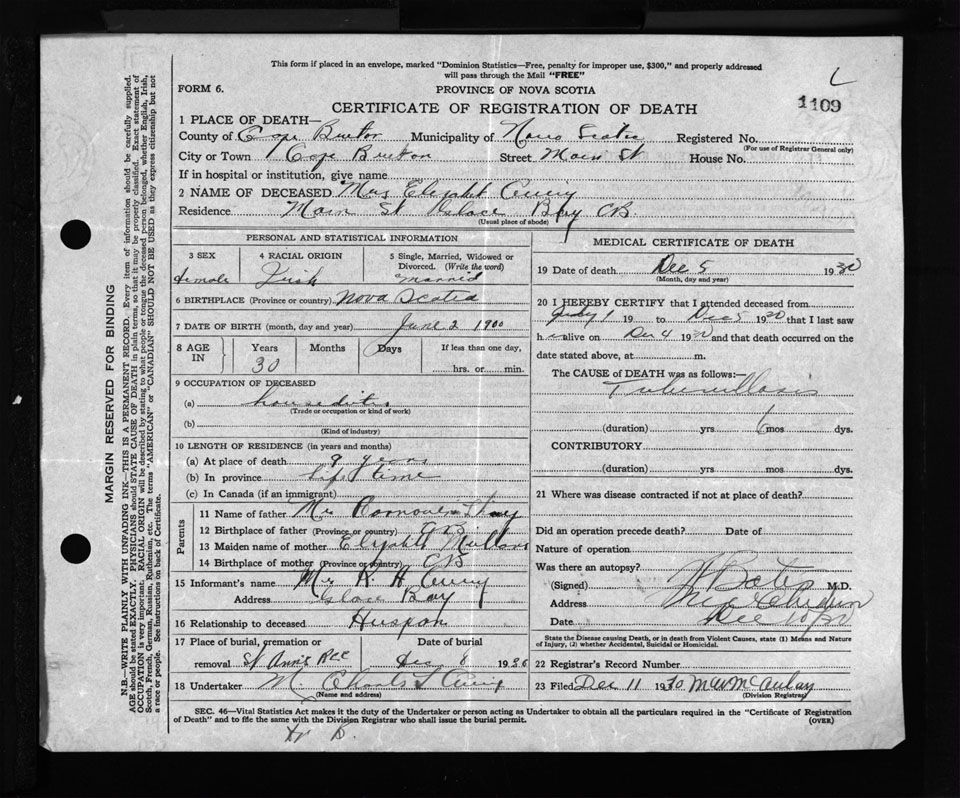 This form if placed in an envelope, marked "Dominion Statistics—Free, penalty for improper use, $300," and properly addressed
will pass through the Mail "FREE"
L
FORM 6.
PROVINCE OF NOVA SCOTIA
1109
CERTIFICATE OF REGISTRATION OF DEATH
1 PLACE OF DEATH—
County of Cape Breton Municipality of Nova Scotia Registered No.
(For use of Registrar General only)
City or Town Cape Breton Street Main St House No.
If in hospital or institution, give name
2 NAME OF DECEASED Mrs Elizabet Currey
Residence Main St Glace Bay CB.
(Usual place of abode)
PERSONAL AND STATISTICAL INFORMATION
3 SEX 4 RACIAL ORIGIN 5 Single, Married, Widowed or
Divorced. (Write the word)
female Irish married
6 BIRTHPLACE (Province or country) Nova Scotia
7 DATE OF BIRTH (month, day and year) June 2 1900
8 AGE IN Years Months Days If less than one day,
30 hrs. or min.
9 OCCUPATION OF DECEASED
(a) house duties
(Trade or occupation or kind of work)
(b)
(Kind of industry)
10 LENGTH OF RESIDENCE (in years and months)
(a) At place of death 9 years
(b) In province life time
(c) In Canada (if an immigrant)
Parents
11 Name of father Mr
12 Birthplace of father (Province or country) CB
13 Maiden name of mother Elizabet
14 Birthplace of mother (Province or country) CB
15 Informant's name Mr
Address Glace Bay
16 Relationship to deceased Huspon
17 Place of burial, cremation or Date of burial
removal St Anns Dec 8 1930
18 Undertaker M.
(Name and address)
MEDICAL CERTIFICATE OF DEATH
19 Date of death Dec 5 1930
(Month, day and year)
20 I HEREBY CERTIFY that I attended deceased from
July 1 19 to Dec 5 1930 that I last saw
h er alive on Dec 4 1930 and that death occurred on the
date stated above, at m.
The CAUSE of DEATH was as follows:—
Tuberculosis
(duration) yrs 6 mos dys.
CONTRIBUTORY
(duration) yrs mos dys.
21 Where was disease contracted if not at place of death?
Did an operation precede death? Date of
Nature of operation
Was there an autopsy?
(Signed) M.D.
Address
Date Dec 10/30
State the Disease causing Death, or in death from Violent Causes, state (1) Means and
Nature of Injury, (2) whether Accidental, Suicidal or Homicidal.
22 Registrar's Record Number
23 Filed Dec 11 1930 McAulay
(Division Registrar)
SEC. 46—Vital Statistics Act makes it the duty of the Undertaker or person acting as Undertaker to obtain all the particulars required in the "Certificate of Registration
of Death" and to file the same with the Division Registrar who shall issue the burial permit. (OVER)
MARGIN RESERVED FOR BINDING
N.B.—WRITE PLAINLY WITH UNFADING INK—THIS IS A PERMANENT RECORD. Every item of information should be carefully supplied.
AGE should be stated EXACTLY. PHYSICIANS should STATE CAUSE OF DEATH in plain terms, so that it may be properly classified. Exact statement of
OCCUPATION is very important. RACIAL ORIGIN will be described by stating to what people or tongue the deceased person belonged, whether English, Irish,
Scotch, French, German, Russian, Ruthenian, etc. The terms "AMERICAN" or "CANADIAN" SHOULD NOT BE USED as they express citizenship but not
a race or people. See instructions on back of Certificate.